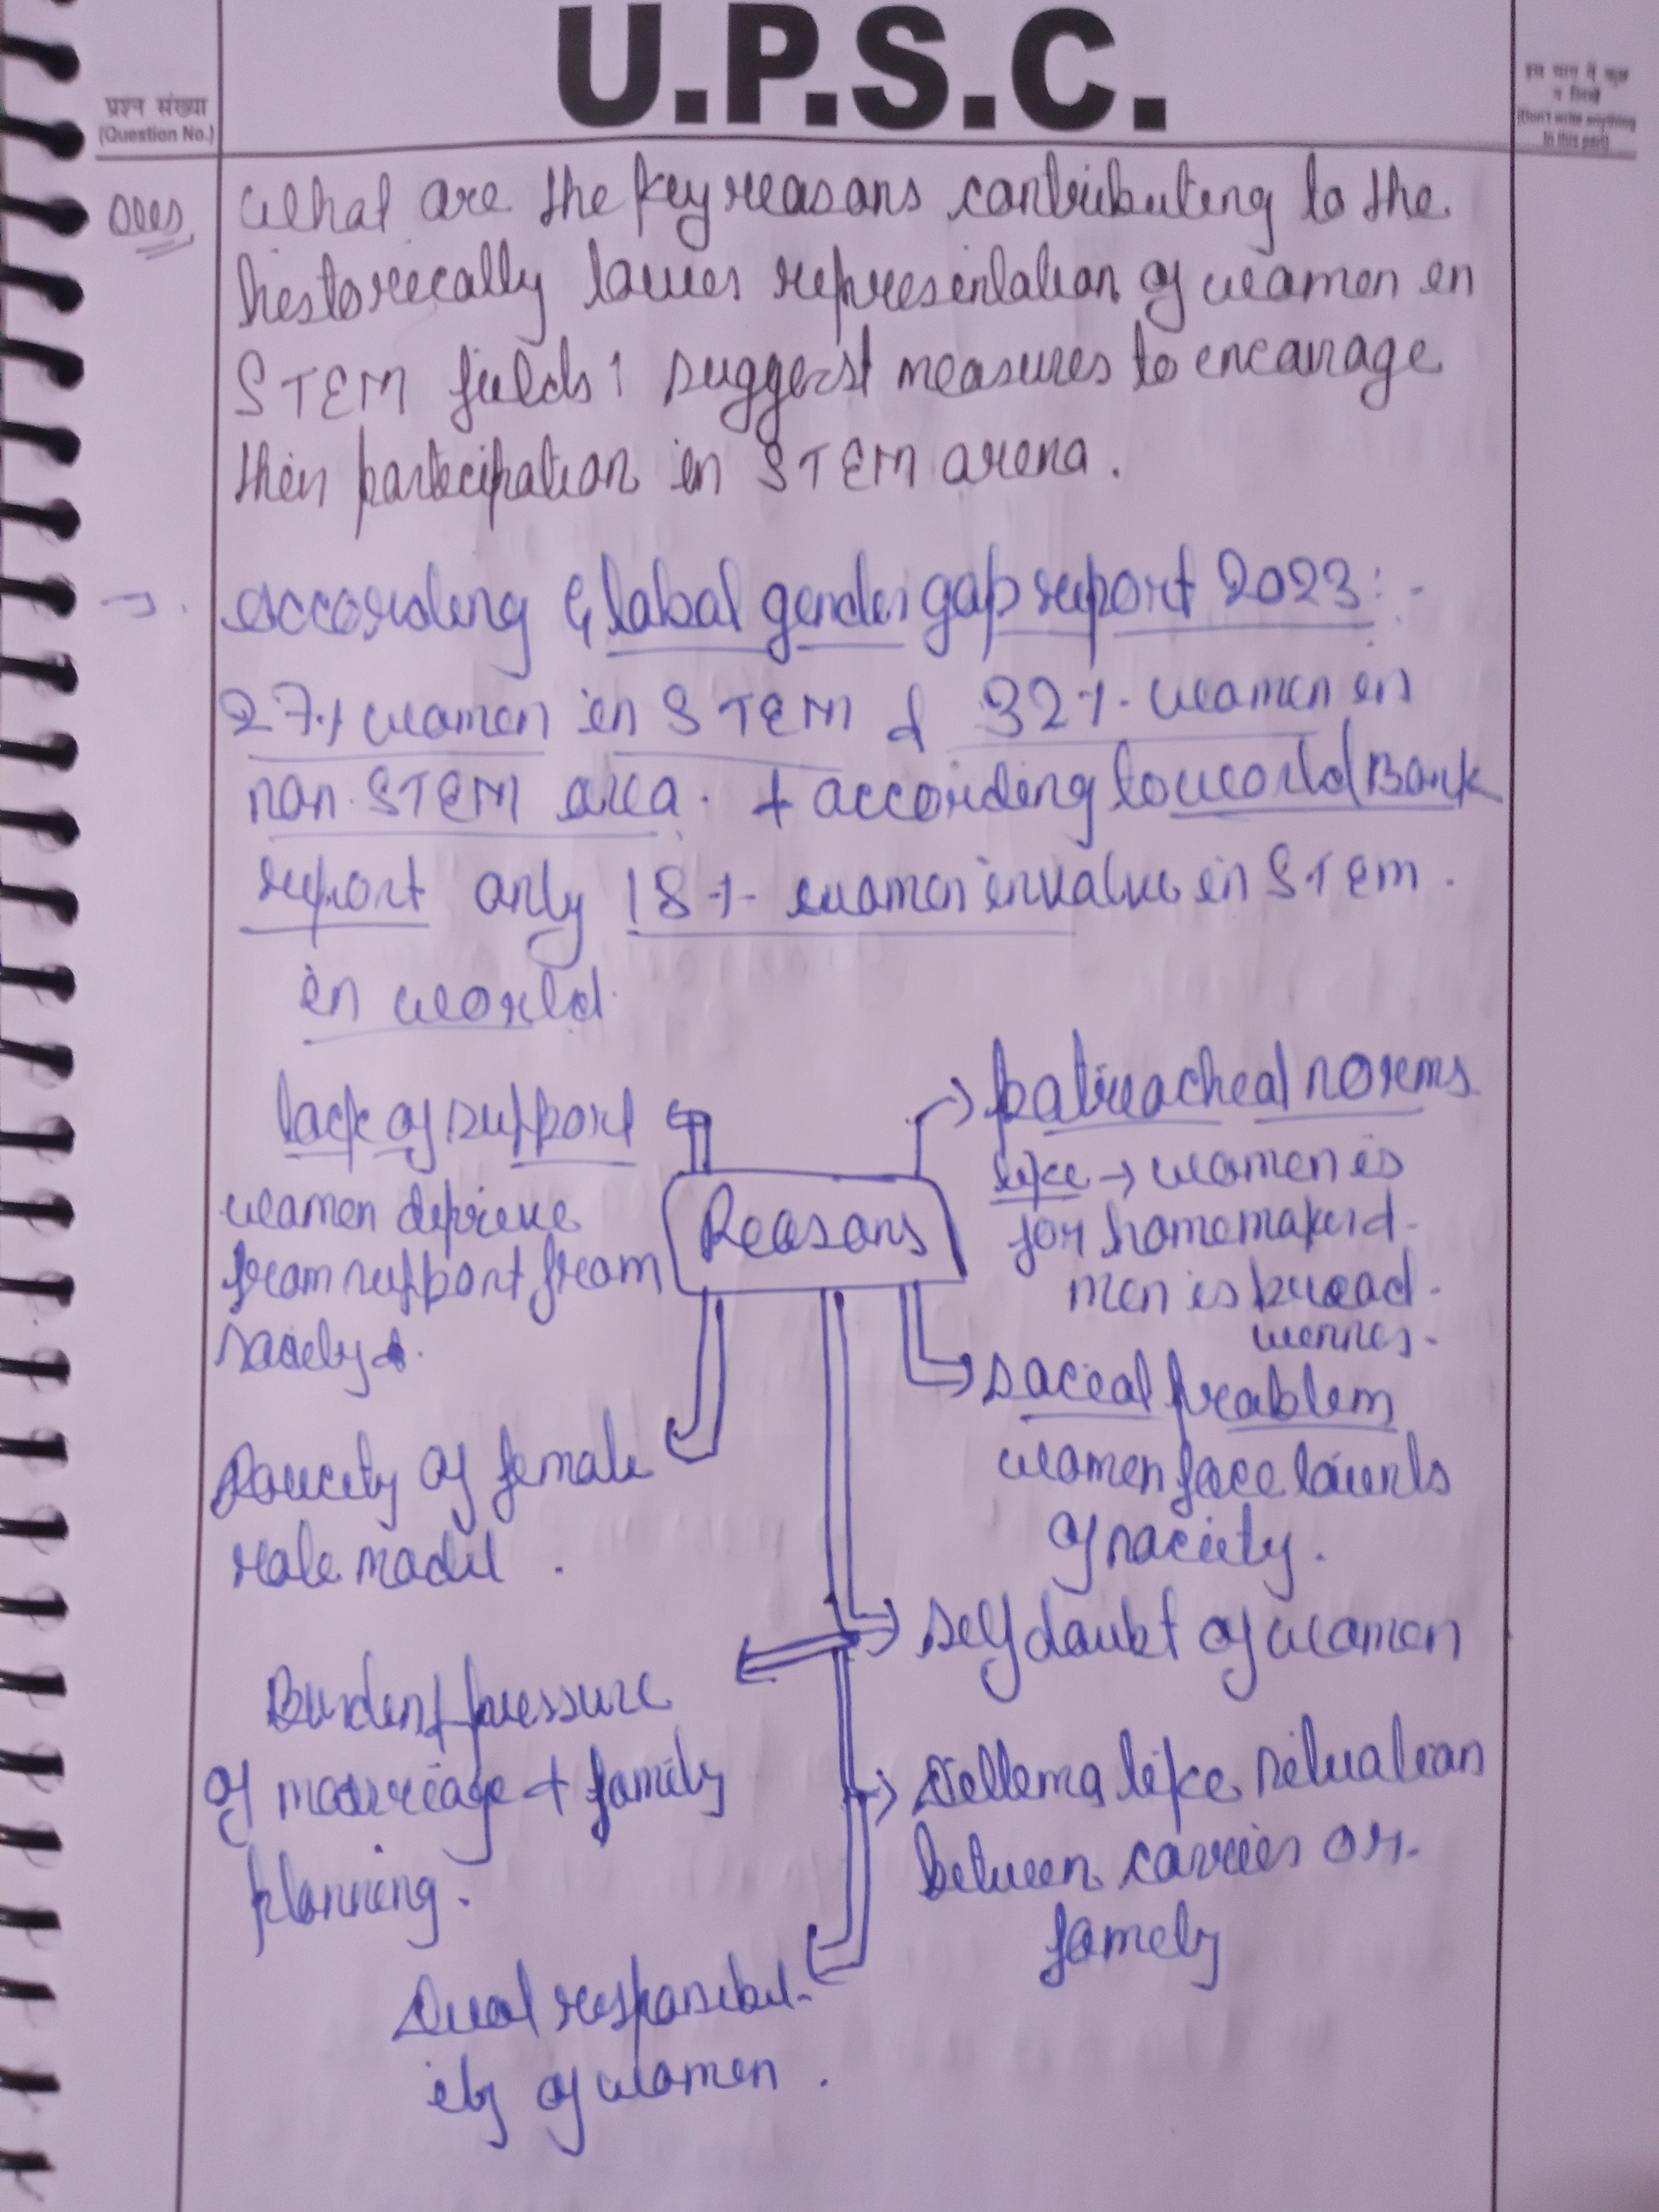 U.P.S.C.
प्रश्न संख्या
(Question No.)
इस भाग में कुछ
न लिखें
(Don't write anything
in this part)
Ques
What are the key reasons contributing to the
historically lower representation of women in
STEM fields? suggest measures to encourage
their participation in STEM arena.
→. according Global gender gap report 2023:-
27% women in STEM & 32% women in
non STEM area. + according to world Bank
report only 18% women involve in STEM.
in world.
Reasons
patriacheal norms
like → women is
for homemaker &
men is bread
winner.
lack of support
women deprive
from support from
society.
social problem
women face taunts
of society.
Paucity of female
role model.
self doubt of women
Burden & pressure
of marriage + family
planning.
Dillema like situation
between carrier or
family
Dual responsibil-
ity of women.